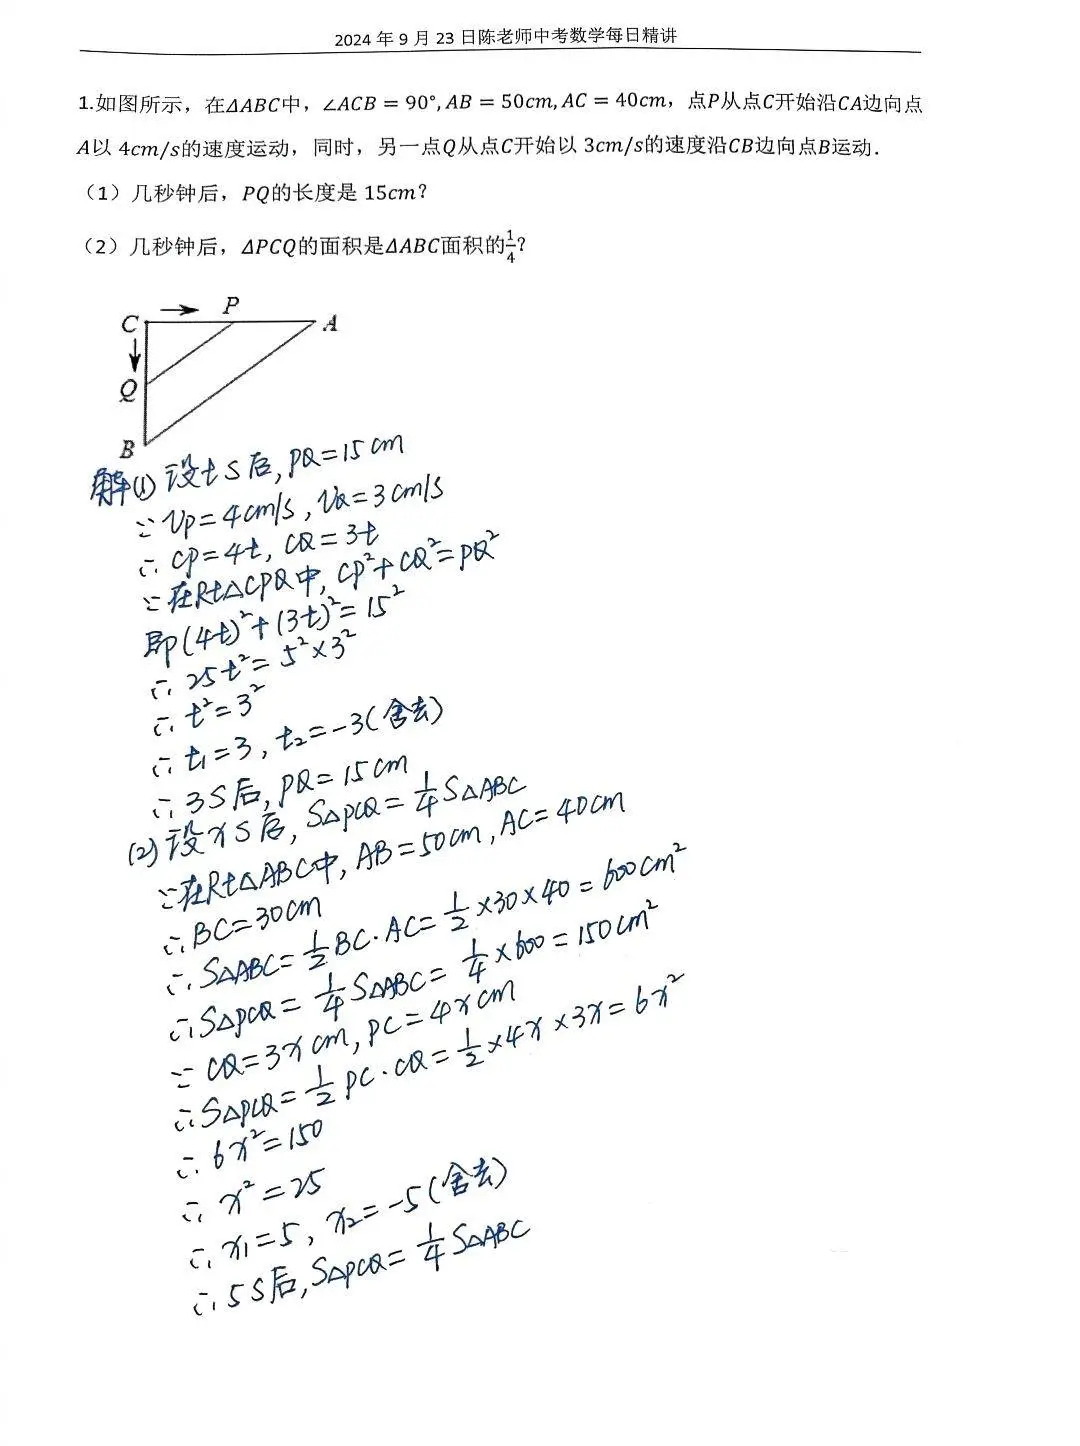 2024 年 9 月 23 日陈老师中考数学每日精讲
1.如图所示，在△ABC中，∠ACB = 90°, AB = 50cm, AC = 40cm，点P从点C开始沿CA边向点
A以 4cm/s的速度运动，同时，另一点Q从点C开始以 3cm/s的速度沿CB边向点B运动.
（1）几秒钟后，PQ的长度是 15cm？
（2）几秒钟后，△PCQ的面积是△ABC面积的1/4？
C P A
Q
B
解(1) 设t s后, PQ=15cm
∵ Vp=4cm/s, VQ=3cm/s
∴ CP=4t, CQ=3t
∵ 在Rt△CPQ中, CP²+CQ²=PQ²
即(4t)²+(3t)²=15²
∴ 25t²=5²×3²
∴ t²=3²
∴ t₁=3, t₂=-3(舍去)
∴ 3s后, PQ=15cm
(2) 设x s后, S△PCQ=1/4 S△ABC
∵在Rt△ABC中, AB=50cm, AC=40cm
∴ BC=30cm
∴ S△ABC=1/2 BC·AC=1/2×30×40=600cm²
∴ S△PCQ=1/4 S△ABC=1/4×600=150cm²
∵ CQ=3x cm, PC=4x cm
∴ S△PCQ=1/2 PC·CQ=1/2×4x×3x=6x²
∴ 6x²=150
∴ x²=25
∴ x₁=5, x₂=-5(舍去)
∴ 5s后, S△PCQ=1/4 S△ABC